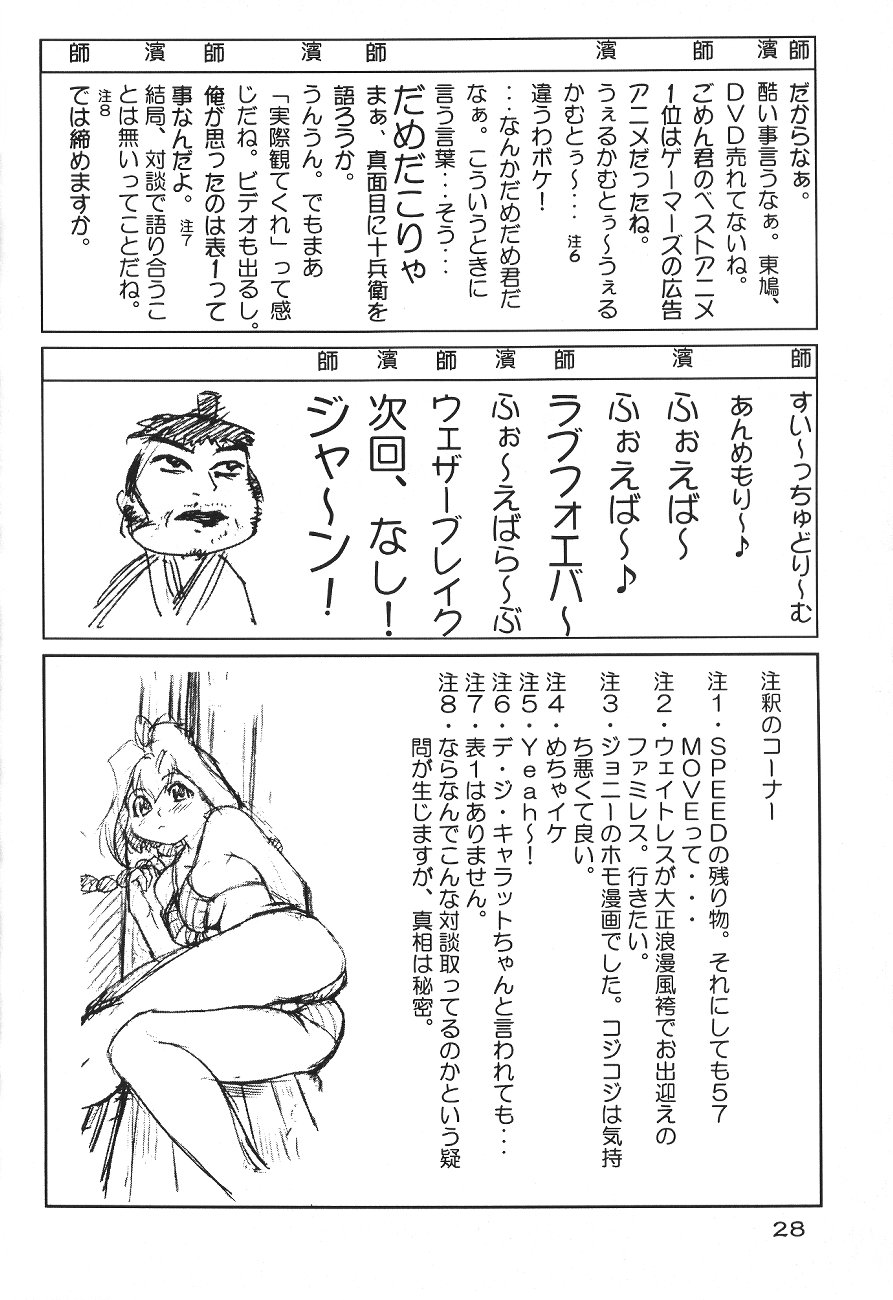 師
濱
師
濱
師
濱
師
濱
師
だからなぁ。
酷い事言うなぁ。東鳩、
DVD売れてないね。
ごめん君のベストアニメ
1位はゲーマーズの広告
アニメだったね。
うぇるかむとぅ～うぇる
かむとぅ～・・・ 注6
違うわボケ！
・・・なんかだめだめ君だ
なぁ。こういうときに
言う言葉・・・そう・・・
だめだこりゃ
まぁ、真面目に十兵衛を
語ろうか。
うんうん。でもまあ
「実際観てくれ」って感
じだね。ビデオも出るし。
俺が思ったのは表1って
事なんだよ。 注7
結局、対談で語り合うこ
とは無いってことだね。
注8
では締めますか。
師
濱
師
濱
師
濱
師
すい～っちゅどり～む
あんめもり～♪
ふぉえば～
ふぉえば～♪
ラブフォエバ～
ふぉ～えばら～ぶ
ウエザーブレイク
次回、なし！
ジャ～ン！
注釈のコーナー
注1・SPEEDの残り物。それにしても57
MOVEって・・・
注2・ウェイトレスが大正浪漫風袴でお出迎えの
ファミレス。行きたい。
注3・ジョニーのホモ漫画でした。コジコジは気持
ち悪くて良い。
注4・めちゃイケ
注5・Yeah～！
注6・デ・ジ・キャラットちゃんと言われても・・・
注7・表1はありません。
注8・ならなんでこんな対談取ってるのかという疑
問が生じますが、真相は秘密。
28